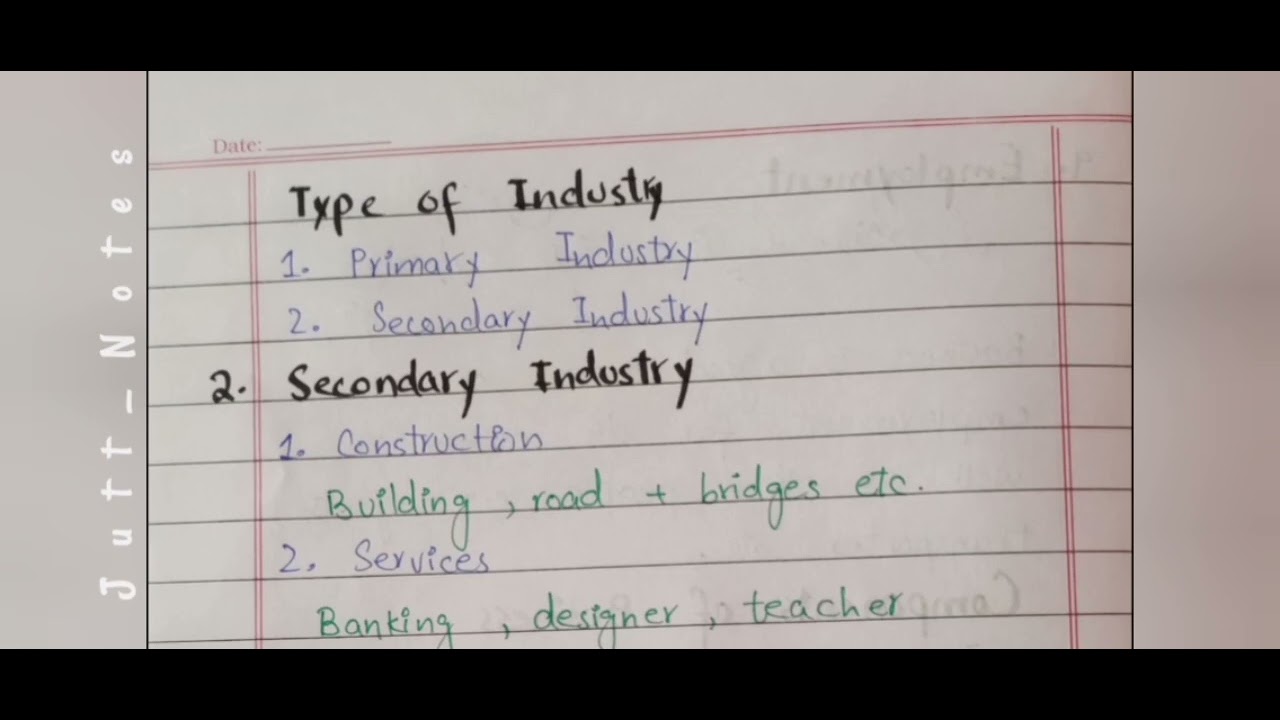 Jutt-Notes
Date:
Type of Industry
1. Primary Industry
2. Secondary Industry
2. Secondary Industry
1. Construction
Building, road + bridges etc.
2. Services
Banking, designer, teacher